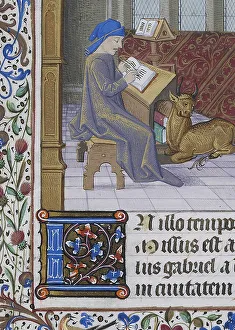 IN illo tempo
missus est a
lus gabriel a
in ciuitatem